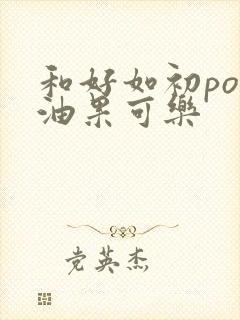 和好如初po
油果可樂
党英杰